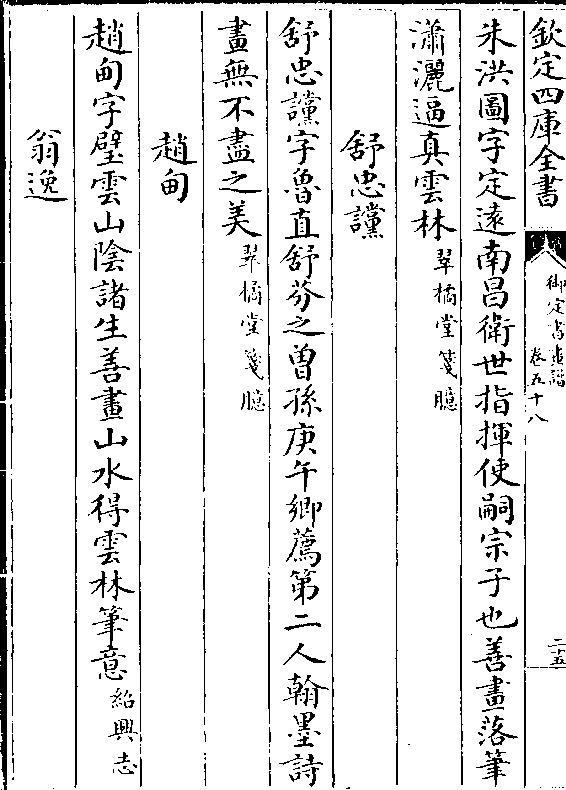 欽定四庫全書
御定書畫譜
卷五十八
二五
朱洪圖字定遠南昌衛世指揮使嗣宗子也善畫落筆
瀟灑逼真雲林翠橘堂箋臆
舒忠讜
舒忠讜字魯直舒芬之曽孫庚午鄉薦第二人翰墨詩
畫無不盡之美翠橘堂箋臆
趙甸
趙甸字璧雲山陰諸生善畫山水得雲林筆意紹興志
翁逸